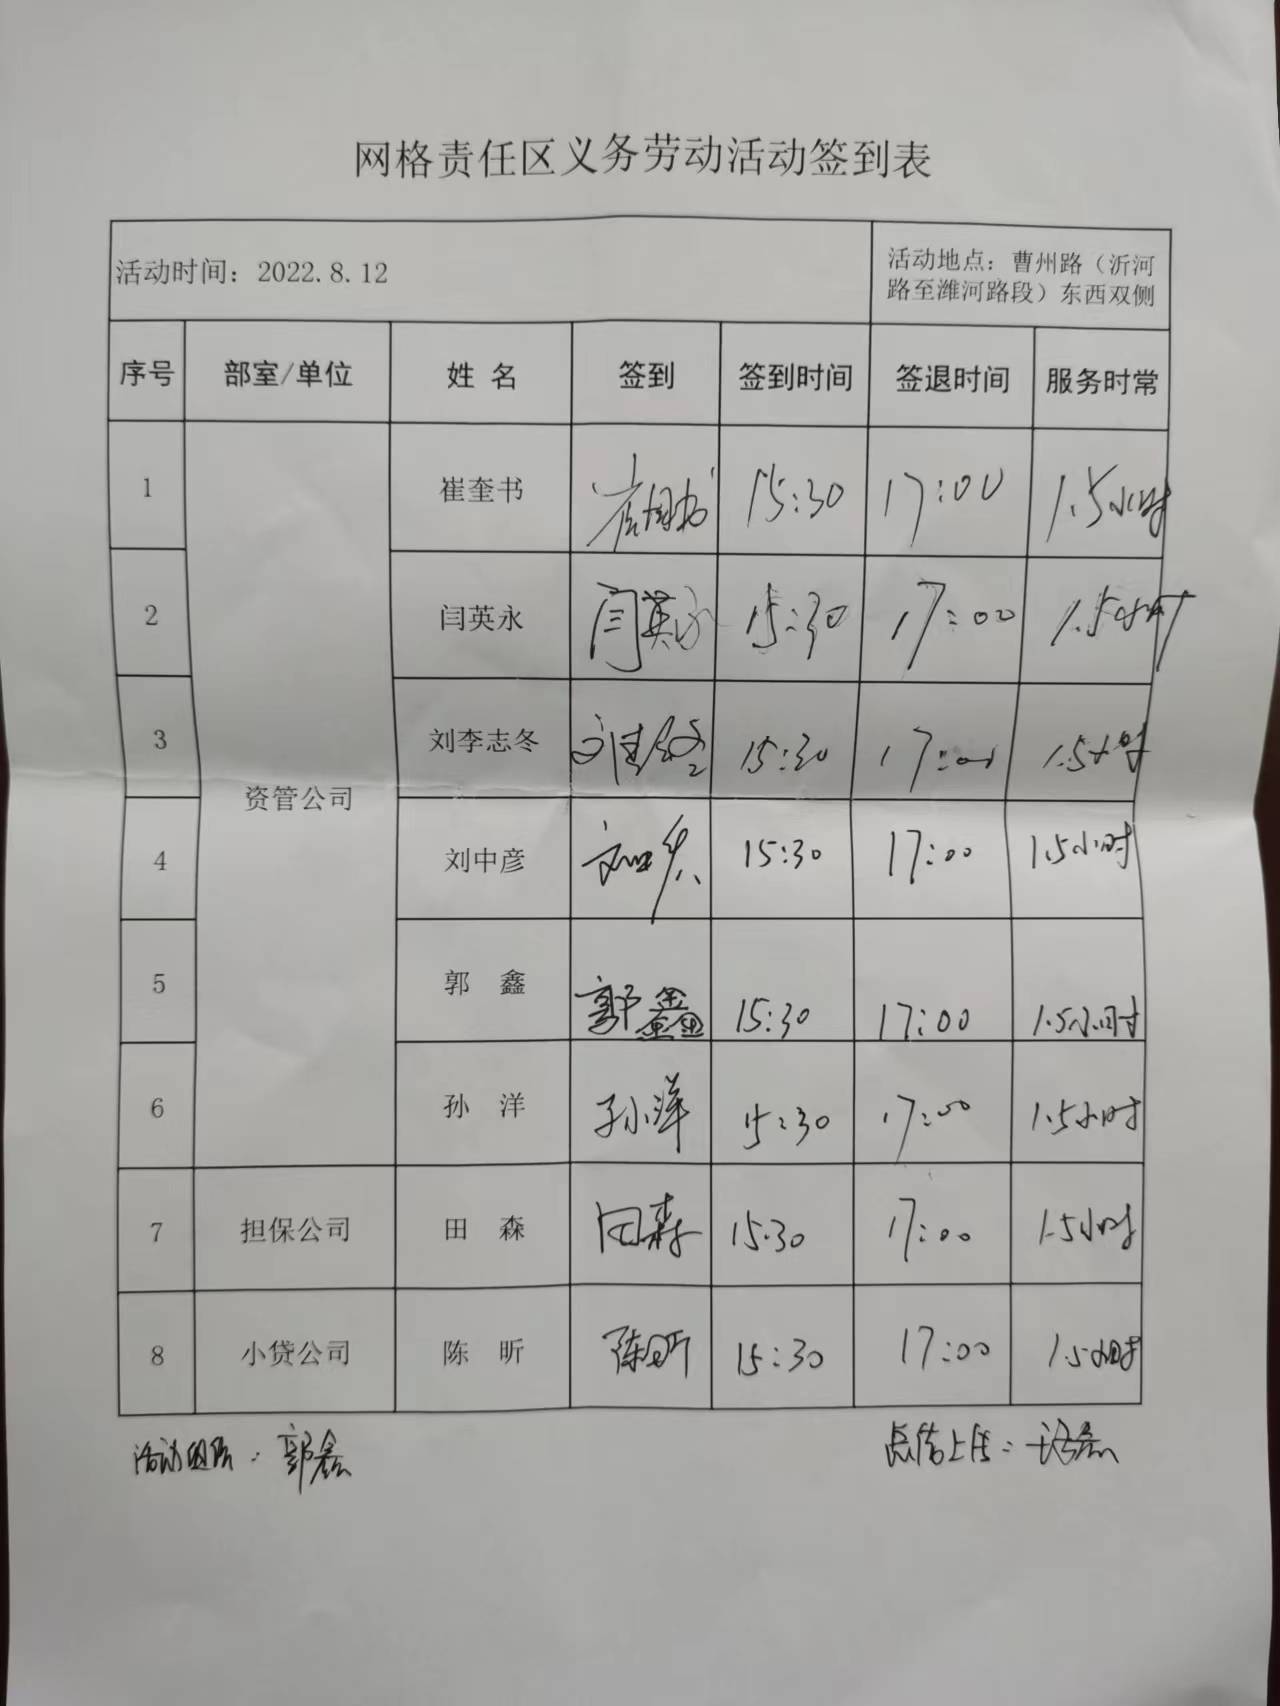 网格责任区义务劳动活动签到表
活动时间：2022.8.12
活动地点：曹州路（沂河
路至潍河路段）东西双侧
序号 部室/单位 姓 名 签到 签到时间 签退时间 服务时常
资管公司
1 崔奎书 15:30 17:00 1.5小时
2 闫英永 闫英永 15:30 17:00 1.5小时
3 刘李志冬 15:30 17:00 1.5小时
4 刘中彦 15:30 17:00 1.5小时
5 郭 鑫 郭鑫 15:30 17:00 1.5小时
6 孙 洋 孙洋 15:30 17:00 1.5小时
7 担保公司 田 森 田森 15:30 17:00 1.5小时
8 小贷公司 陈 昕 陈昕 15:30 17:00 1.5小时
活动组织：郭鑫